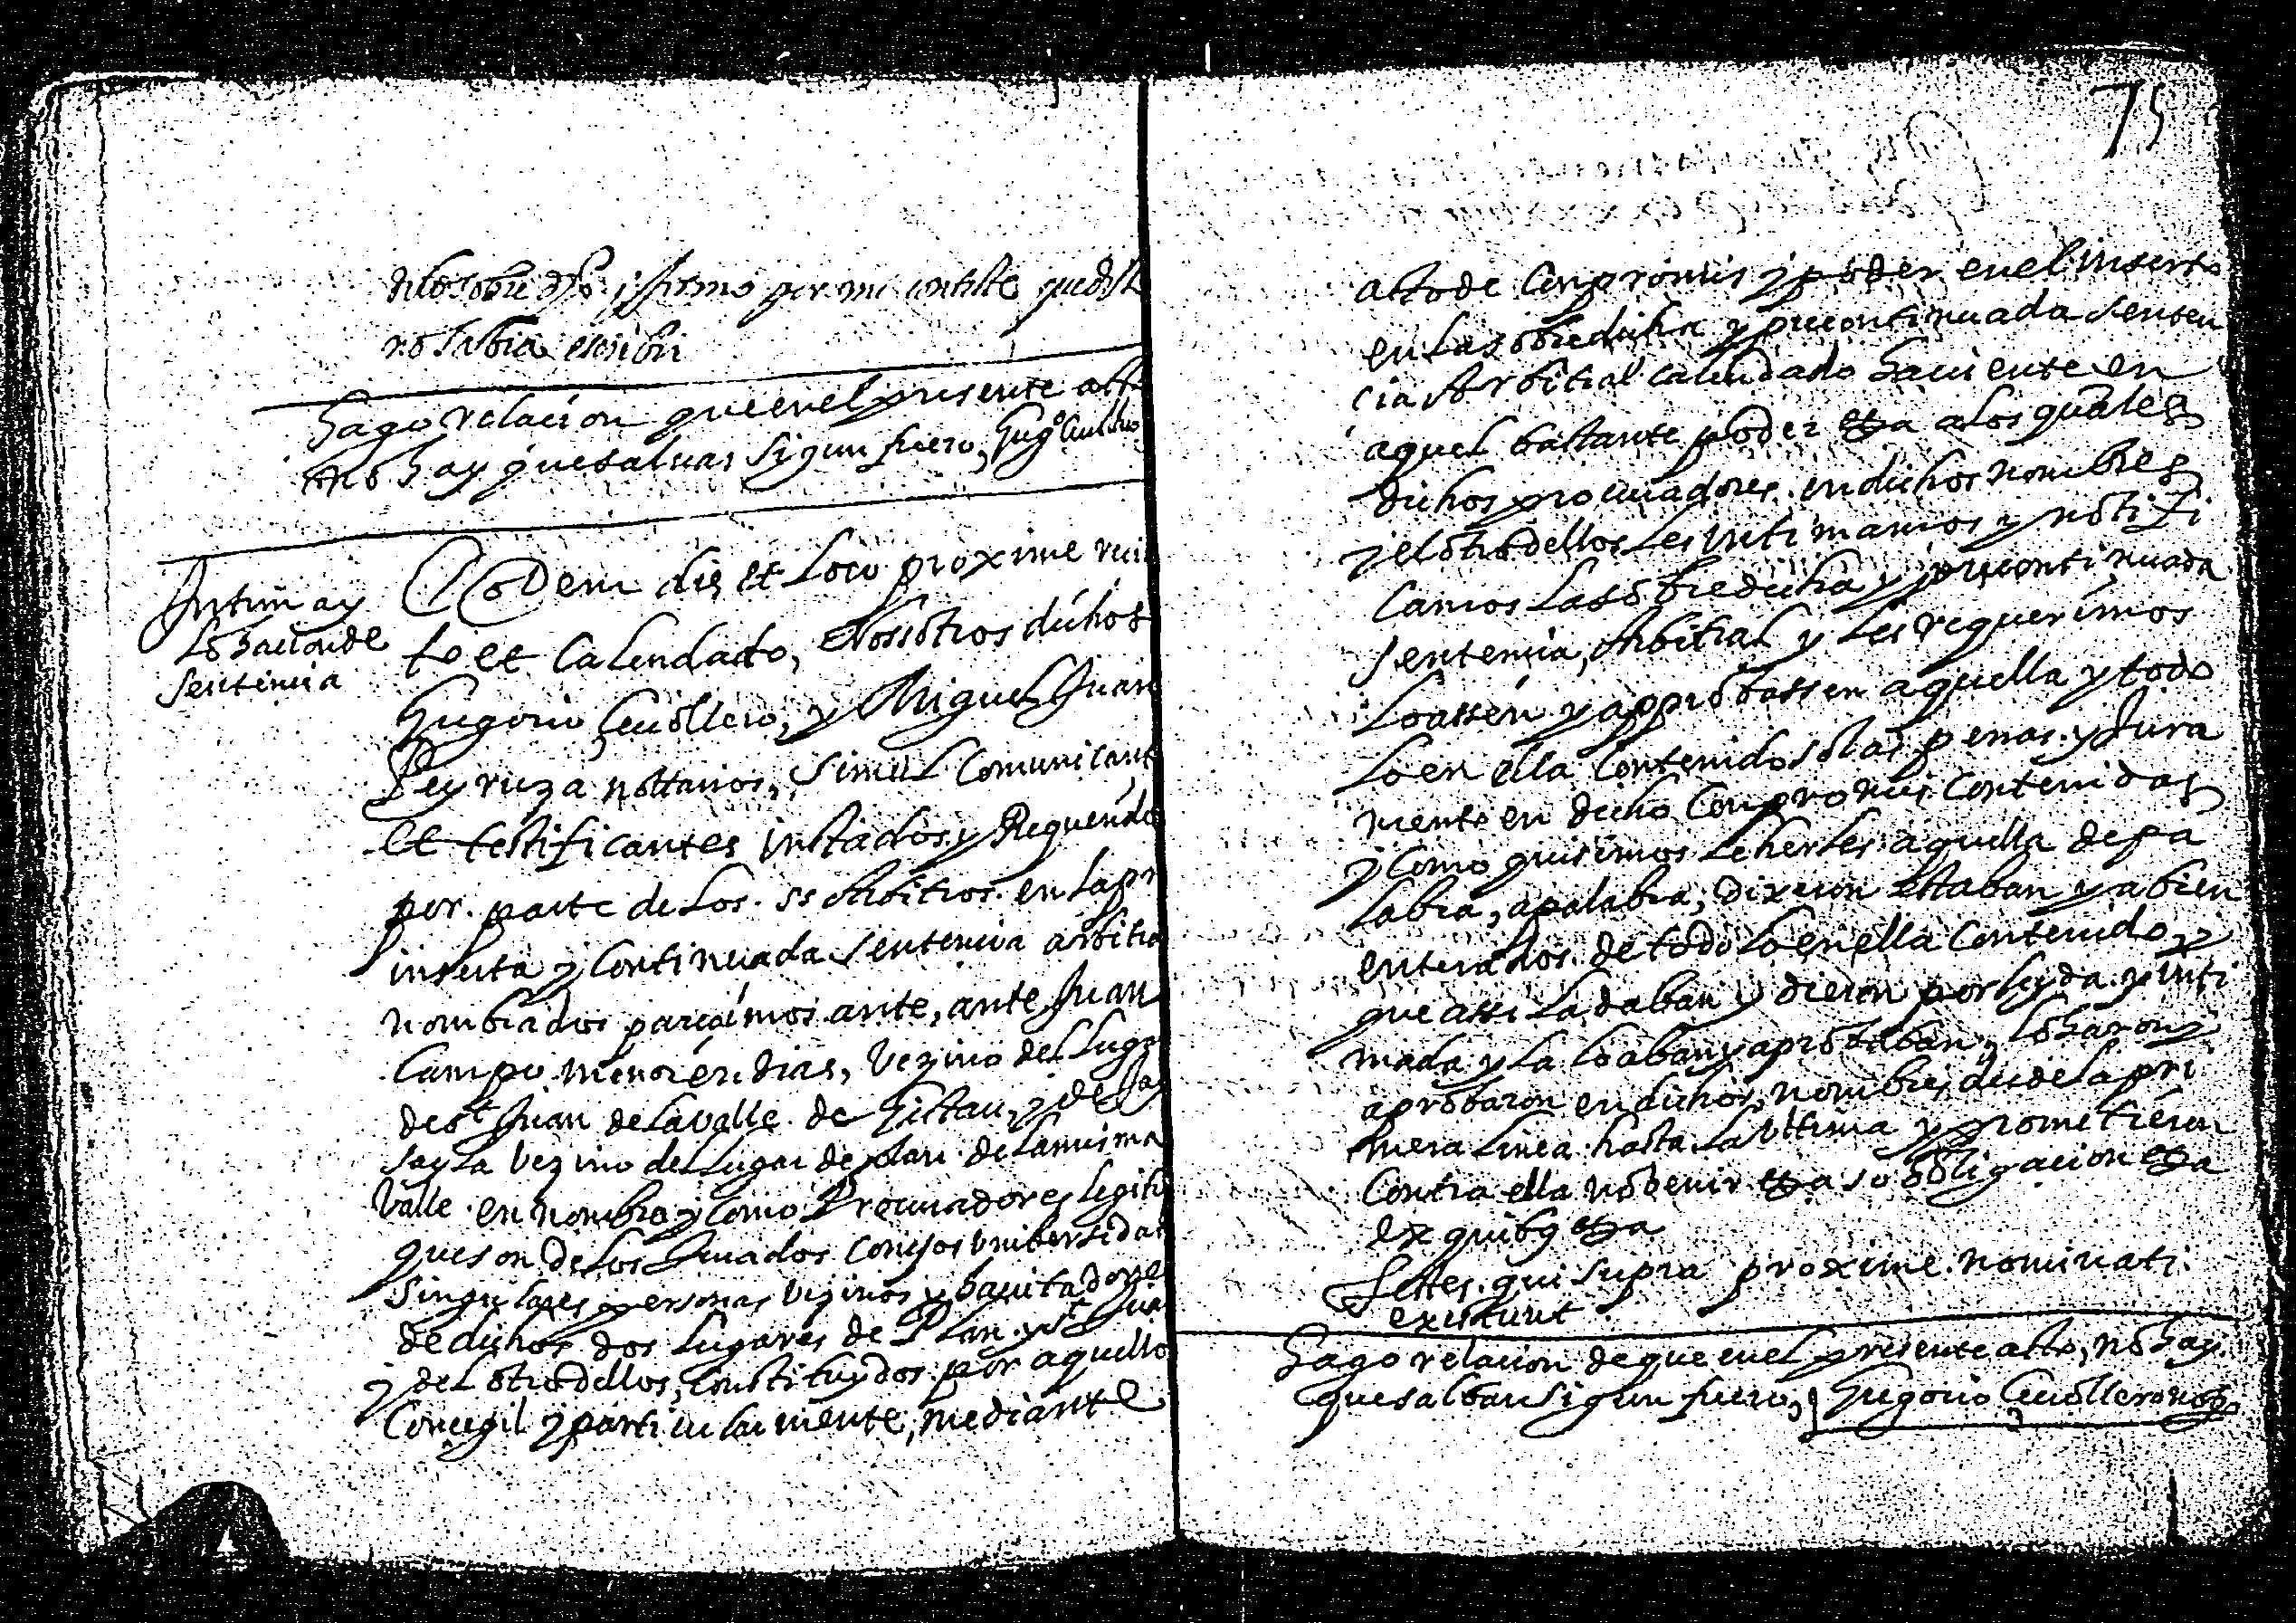 de lo sobre dho y firmo por mi conteste que dixo
no sabia escribir
Hago relacion que en el presente acto
no hay que salvar sigun fuero, Gregº Cuillero
Intima y
Lohacion de
sentencia
Eodem die et Loco proxime reci
to et Calendado, Nossotros dichos
Gregorio Cavallero, y Miguel Juan
Peyruza nottarios, simul Comunicant
et testificantes instados y Requerido
por parte de Los ss Arbitros en la pr
inserta y Continuada sentencia arbitra
nombrados pareçimos ante, ante Juan
Campo menor en dias, Vezino del Luga
de St Juan de la valle de Gistau, y de
Sayla Vezino del Lugar de plan de la misma
Valle en nombre y como Procuradores legiti
que son de los Jurados Concejos Unibersidad
singulares personas Vezinos y havitadores
de dichos dos Lugares de Plan y St Jua
y del otro dellos, constituydos por aquello
Concegil y particularmente, mediante
75
acto de Conpromis y poder en el inserto
en la sobredicha y precontinuada senten
cia Arbitral calendado haviente en
aquel bastante poder etza a los quales
dichos procuradores en dichos nombres
y el otro dellos les intimamos y notifi
camos la sobredicha y precontinuada
sentencia, Arbitral y les requerimos
Loassen y approbassen aquella y todo
lo en ella Contenido so las penas y Jura
mento en dicho Conpromis contenidas
y como quisimos leherles aquella de pa
labra, a palabra, dixeron estaban ya bien
enterados de todo lo en ella Contenido y
que assi la daban y dieron por leyda y inti
mada y la loaban y aprobaban, loharon y
aprobaron en dichos nombres desde la pri
mera linea hasta la Ultima y prometieron
Contra ella no benir etza so obligacion etza
ex quibus etza
Testes qui supra proxime nominati
existunt
Hago relacion de que en el presente acto, no hay
que salbar sigun fuero, Gregorio Cavallero notº